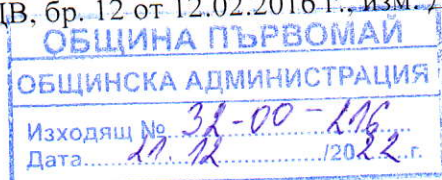 ДВ, бр. 12 от 12.02.2016 г., изм. Д
ОБЩИНА ПЪРВОМАЙ
ОБЩИНСКА АДМИНИСТРАЦИЯ
Изходящ № 32-00-216
Дата 21.12 /2022 г.